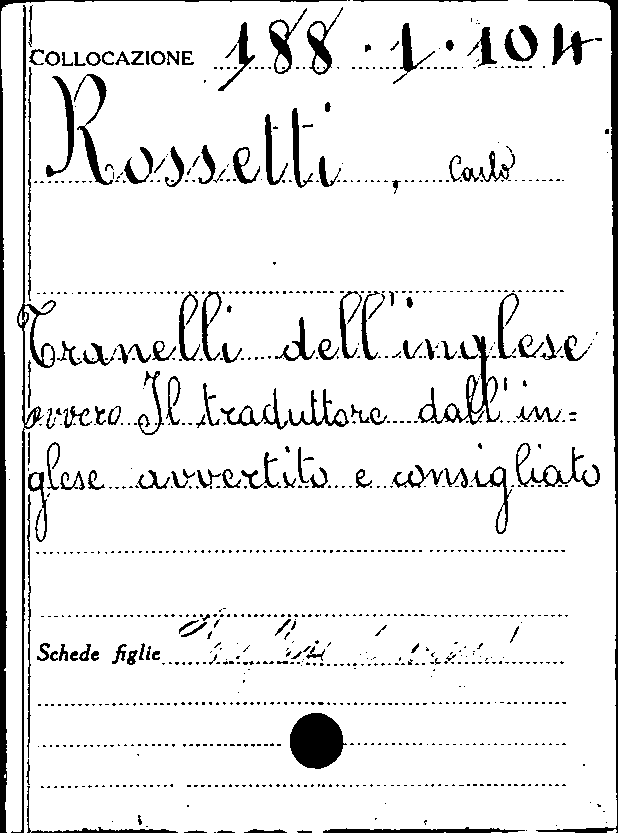 COLLOCAZIONE 188.1.104
Rossetti, Carlo
Tranelli dell'inglese
ovvero Il traduttore dall'in=
glese avvertito e consigliato
Schede figlie